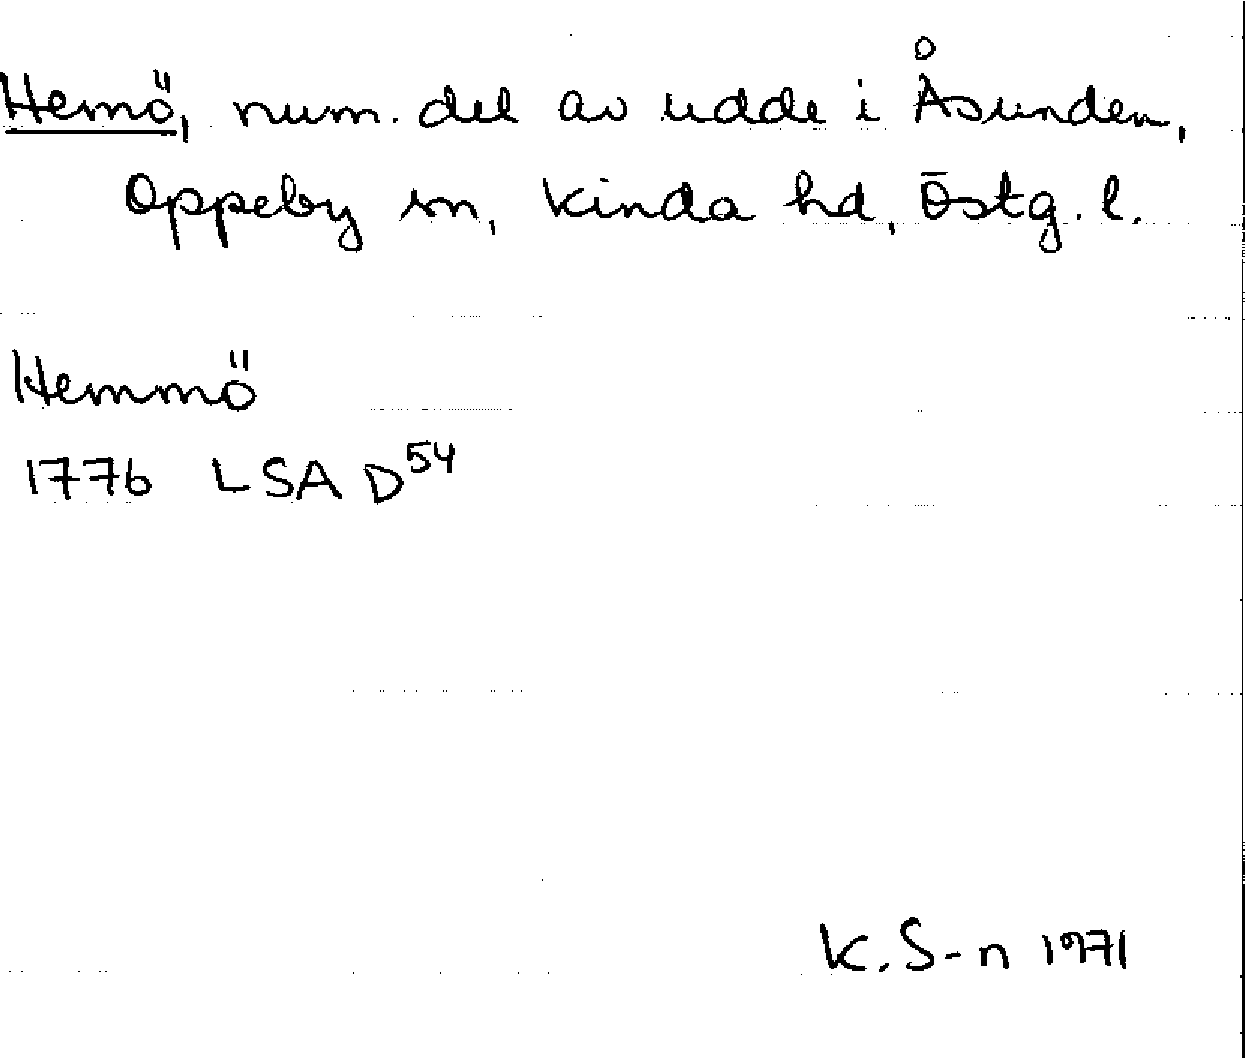 Hemö, num. del av udde i Åsunden,
Oppeby sn, Kinda hd, Östg. l.
Hemmö
1776 LSA D54
K. S-n 1971